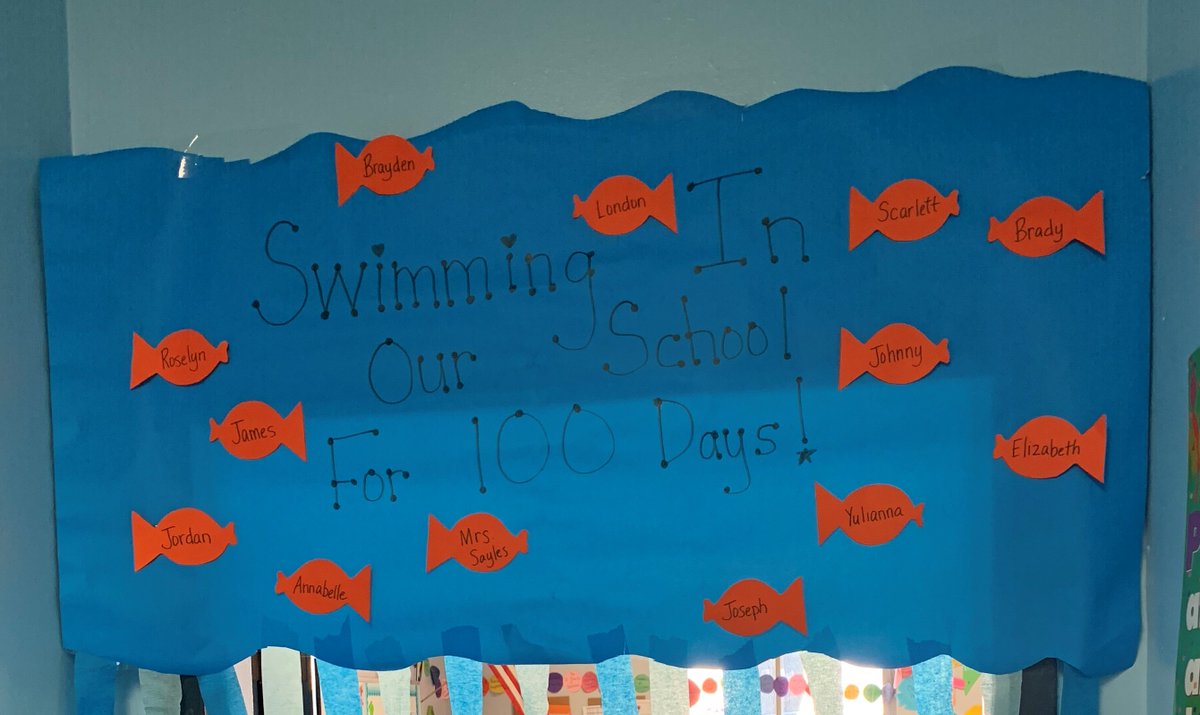 Brayden
London
Scarlett
Brady
Swimming In
Our School
For 100 Days!
Roselyn
Johnny
James
Elizabeth
Jordan
Mrs
Sayles
Yulianna
Annabelle
Joseph